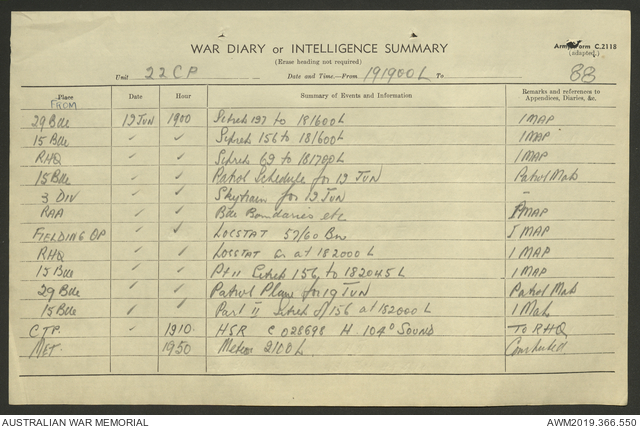 WAR DIARY or INTELLIGENCE SUMMARY
(Erase heading not required)
Army Form C.2118
(adapted.)
Unit 22 CP Date and Time.—From 191900L To 88
Place Date Hour Summary of Events and Information Remarks and references to Appendices, Diaries, &c.
FROM
29 Bde 19 JUN 1900 197 to 181600L 1 MAP
15 Bde ✓ ✓ 156 to 181600L 1 MAP
RHQ ✓ ✓ 69 to 181700L 1 MAP
15 Bde ✓ ✓ Patrol Schedule for 19 JUN Patrol Map
3 DIV ✓ ✓ Skytrain for 19 JUN –
RAA ✓ ✓ Bde Boundaries etc MAP
FIELDING OP ✓ ✓ LOCSTAT 57/60 Bn 1 MAP
RHQ ✓ ✓ LOCSTAT at 182000L 1 MAP
15 Bde ✓ ✓ Pt II 156 to 182045L 1 MAP
29 Bde ✓ ✓ Patrol Plan for 19 JUN Patrol Map
15 Bde ✓ ✓ Part II 156 at 182000L 1 Map
CTP. ✓ 1910 HSR C 028698 M 104° SOUND TO RHQ
MET. 1950 Meteor 2100L
AUSTRALIAN WAR MEMORIAL AWM2019.366.550